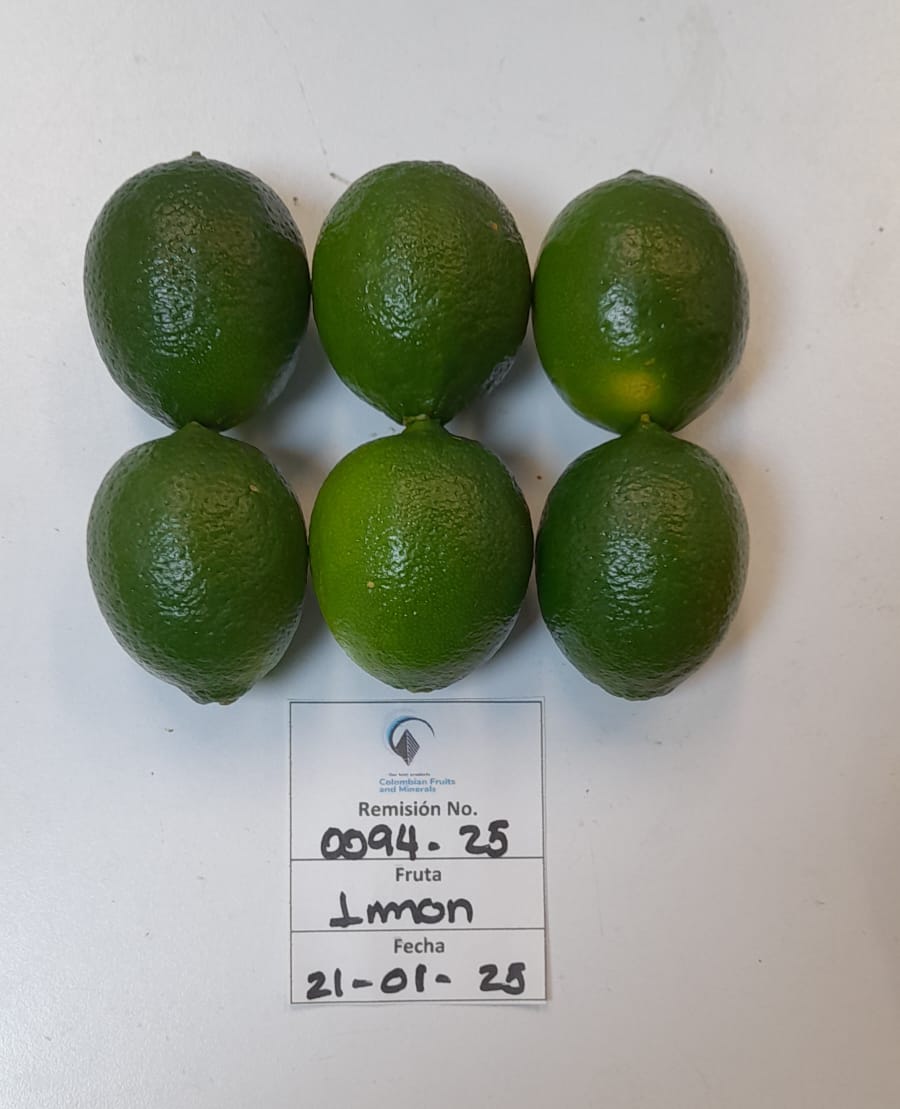 Our best products
Colombian Fruits
and Minerals
Remisión No.
0094-25
Fruta
Limon
Fecha
21-01-25